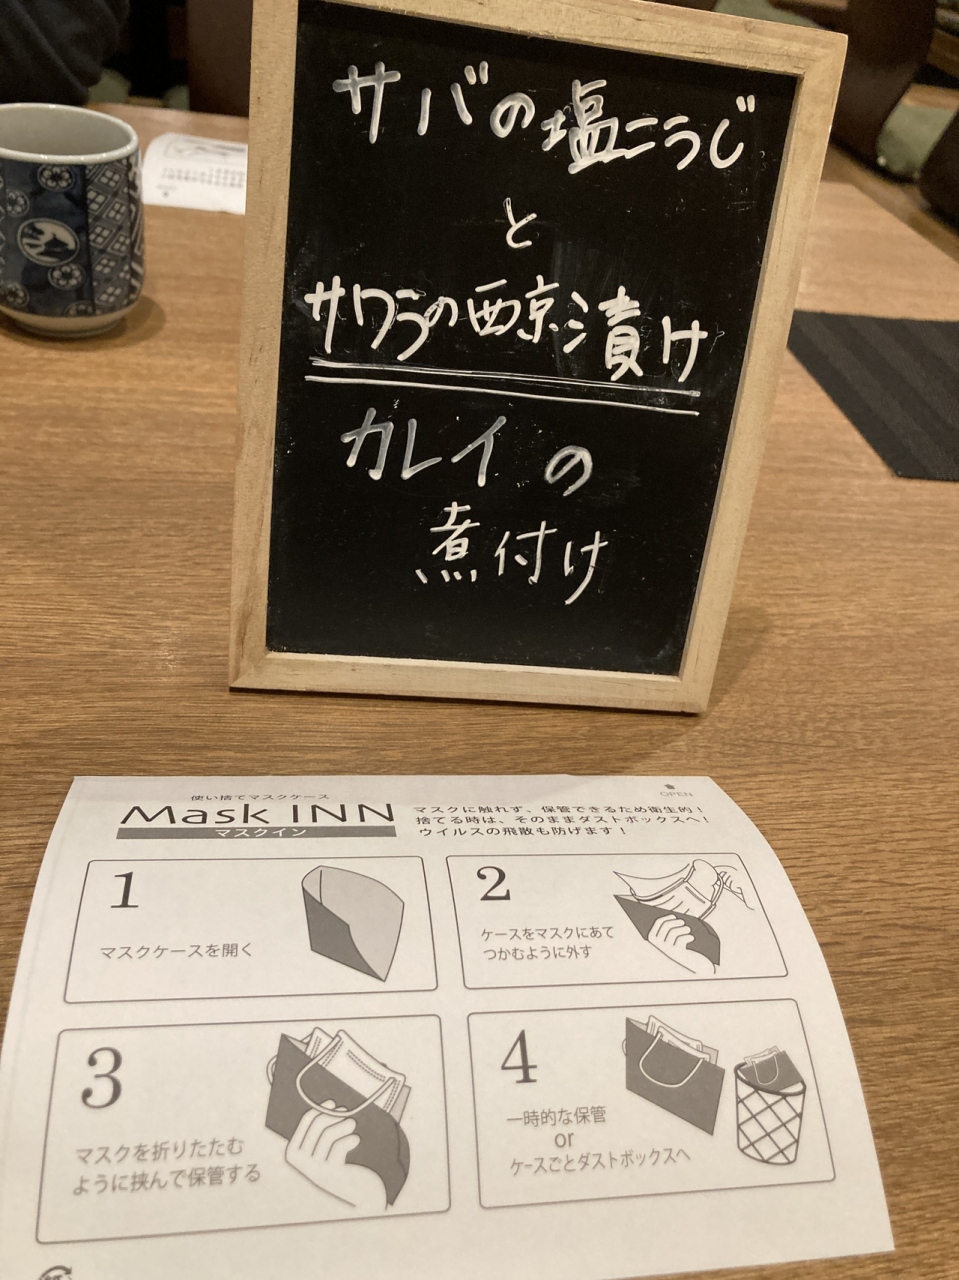 サバの塩こうじ
と
サワラの西京漬け
カレイの
煮付け
OPEN
使い捨てマスクケース
Mask INN
マスクイン
マスクに触れず、保管できるため衛生的！
捨てる時は、そのままダストボックスへ！
ウイルスの飛散も防げます！
1
マスクケースを開く
2
ケースをマスクにあて
つかむように外す
3
マスクを折りたたむ
ように挟んで保管する
4
一時的な保管
or
ケースごとダストボックスへ